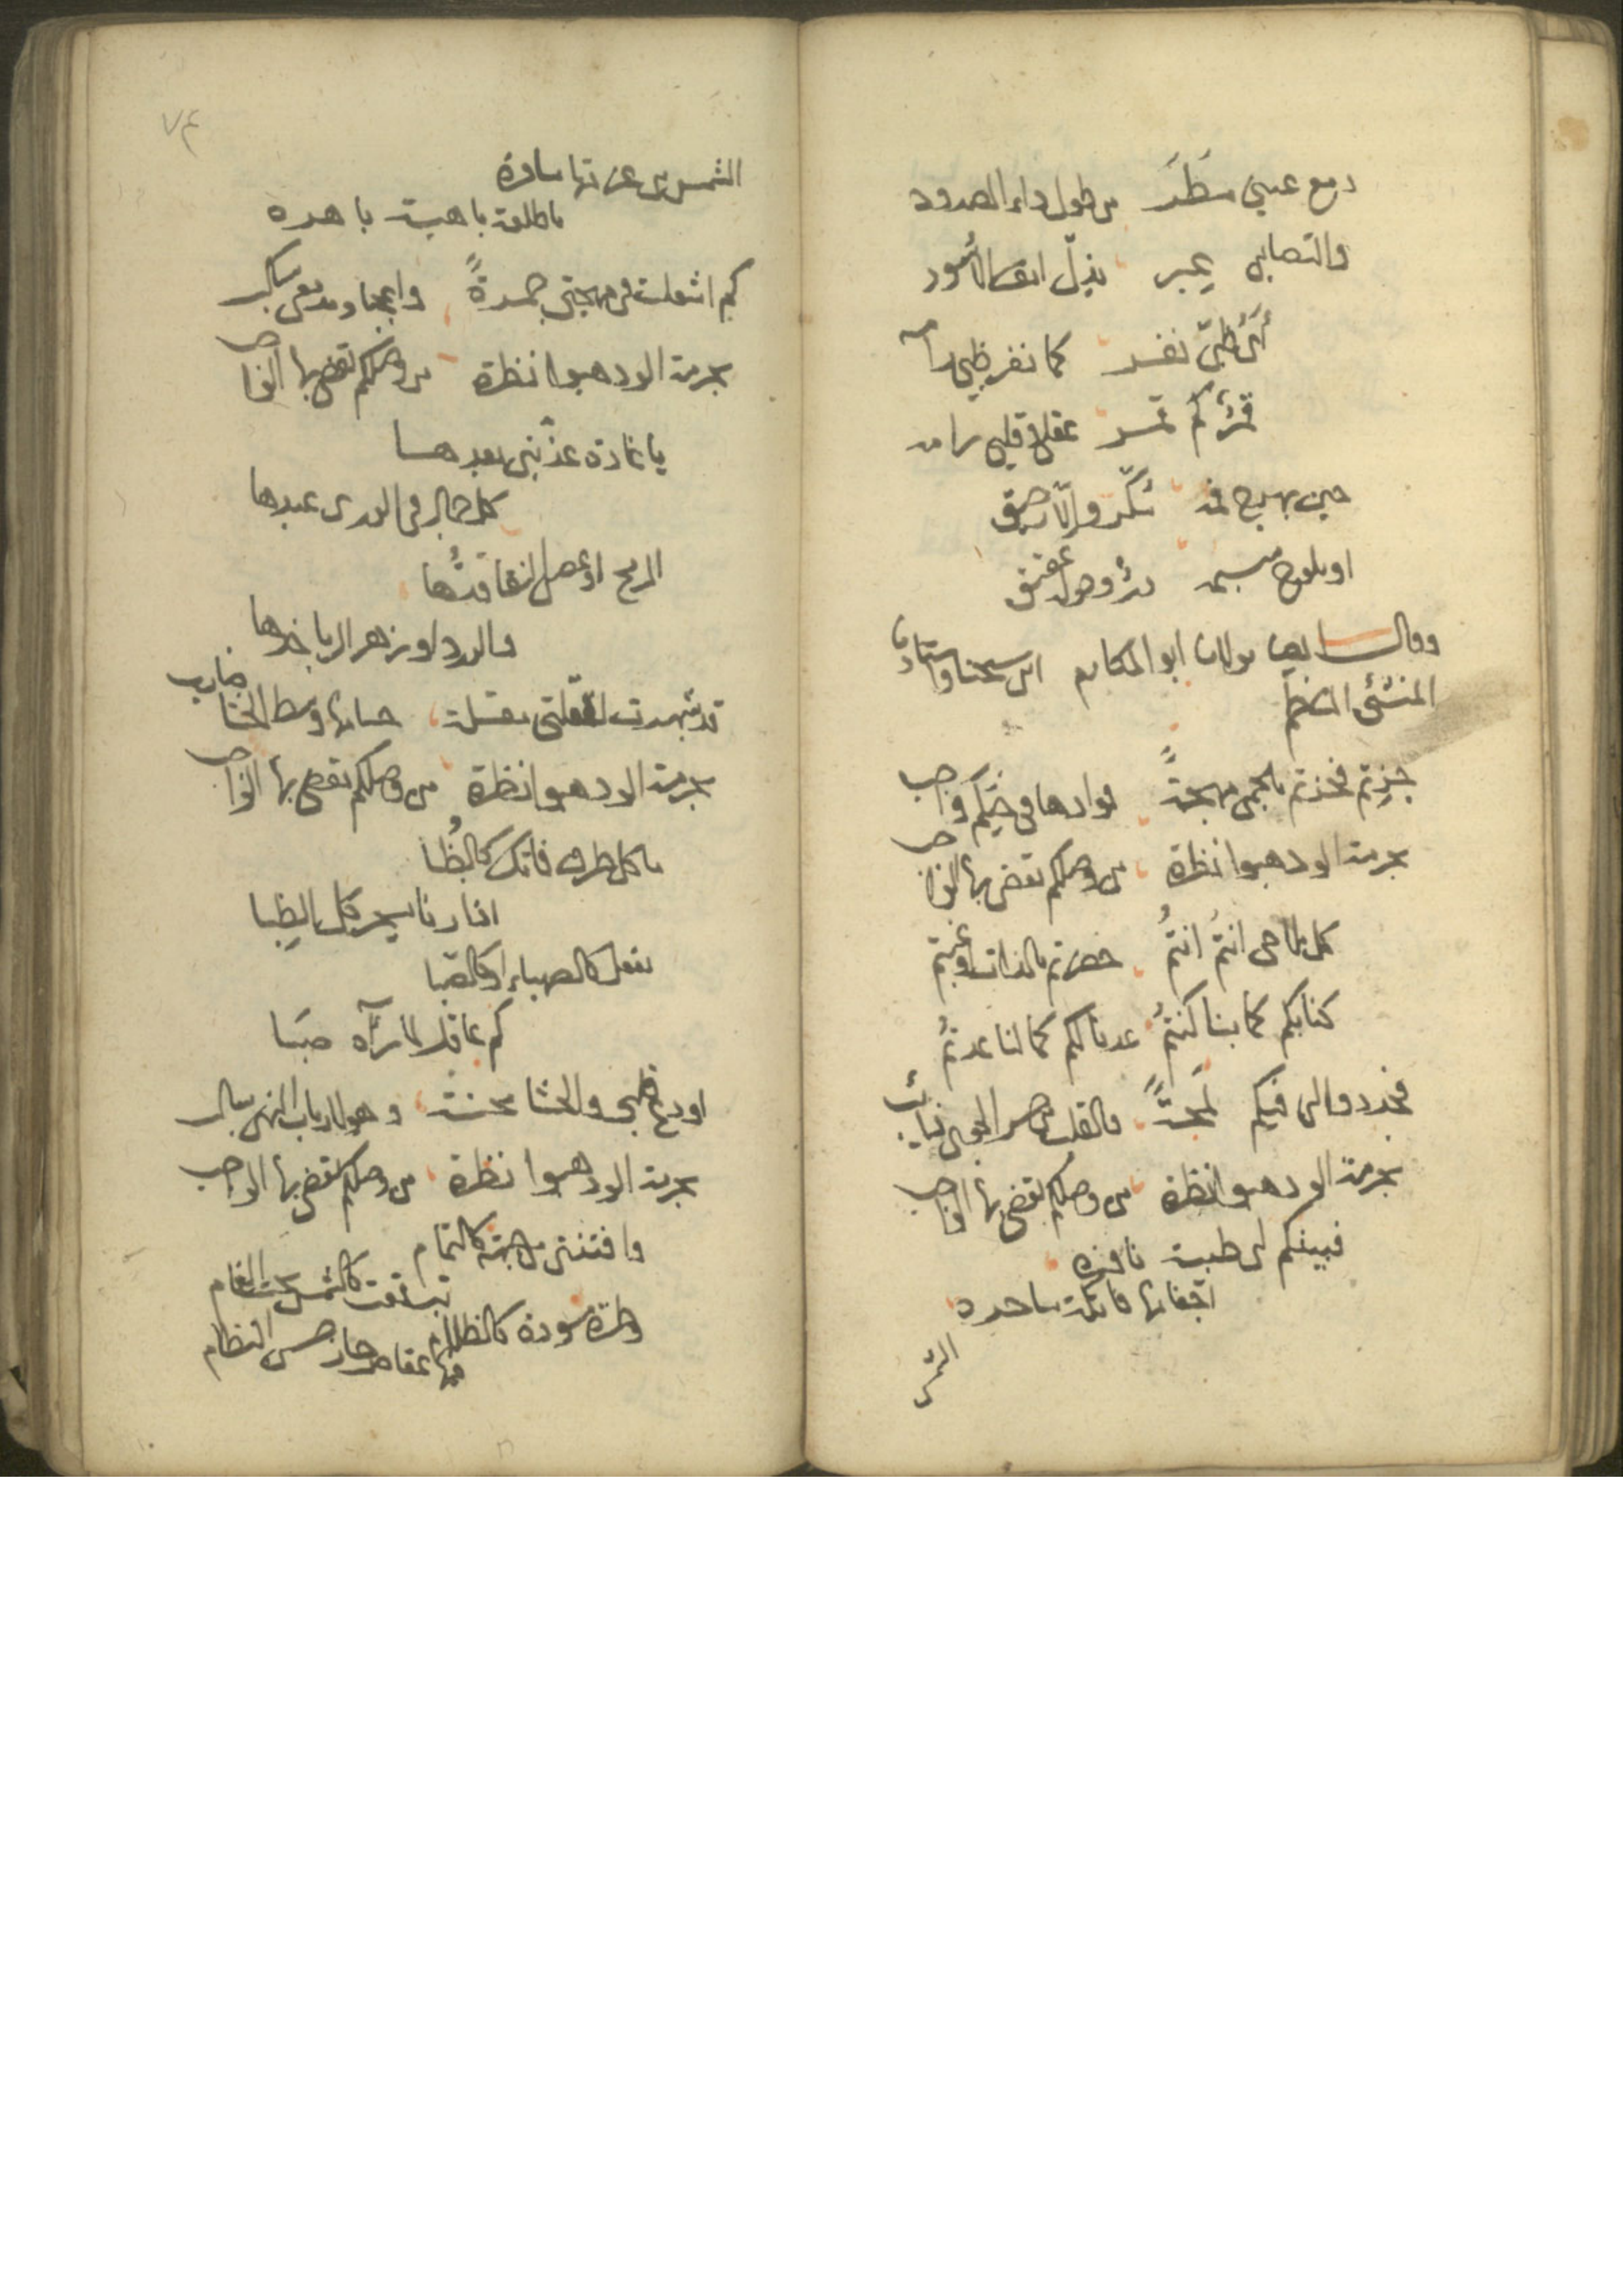 دمع عيني مطر من طول داء الصدود
والتصابي يجبر يذل انف الاسود
أي ظبي نفر كما نفر ظبي رامه
قمر كم قمر عقلي وقلبي رامه
حين يهيج قد سكر والا رحيق
او يلوح مبسم در وحوله عقيق
وقال سيدي مولانا ابو المكارم ابن شيخنا واستاذنا
المنشئ الناظم
جزتم فحزتم بالحمى مهجة فودادها في حيكم واجب
بحرمة الود هبوا نظرة من وصلكم نقضي بها الواجب
كل جمالي انتم انتم حضرتم بالذات او غبتم
كنا بكم كما بنا كنتم عدنا لكم كما لنا عدتم
فجددوا لي فيكم لمحة فالقلب من حر الجوى ذائب
بحرمة الود هبوا نظرة من وصلكم نقضي بها الواجب
فبينكم لي ظبية نافره
اجفانها فاتكة ساحره
الشمس
٧٤
الشمس من غرتها سافرة
ما طلعة باهية باهره
كم اشعلت في مهجتي جمرة واعجبا ومدمعي ساكب
بحرمة الود هبوا نظرة من وصلكم نقضي بها الواجب
يا غادة عذبني بعدها
كل جمال في الورى عبدها
الرمح او غصن النقا قدها
والورد او زهر الربا خدها
قد شهرت لقتلتي مقلة حسامها وسط الحشا ضارب
بحرمة الود هبوا نظرة من وصلكم نقضي بها الواجب
ما كل طرف فاتك كالظبا
اذا رنا يسحر كل الظبا
يفعل كالصهباء او كالصبا
كم عاقل لما رآه صبا
اودع قلبي والحشا محنة وهو لارباب النهى سالب
بحرمة الود هبوا نظرة من وصلكم نقضي بها الواجب
وافتنتي من جبهة كالتمام
تبرقعت كالشمس تحت الغمام
وطرة مسودة كالظلام
فيها عقاص حاز حسن النظام